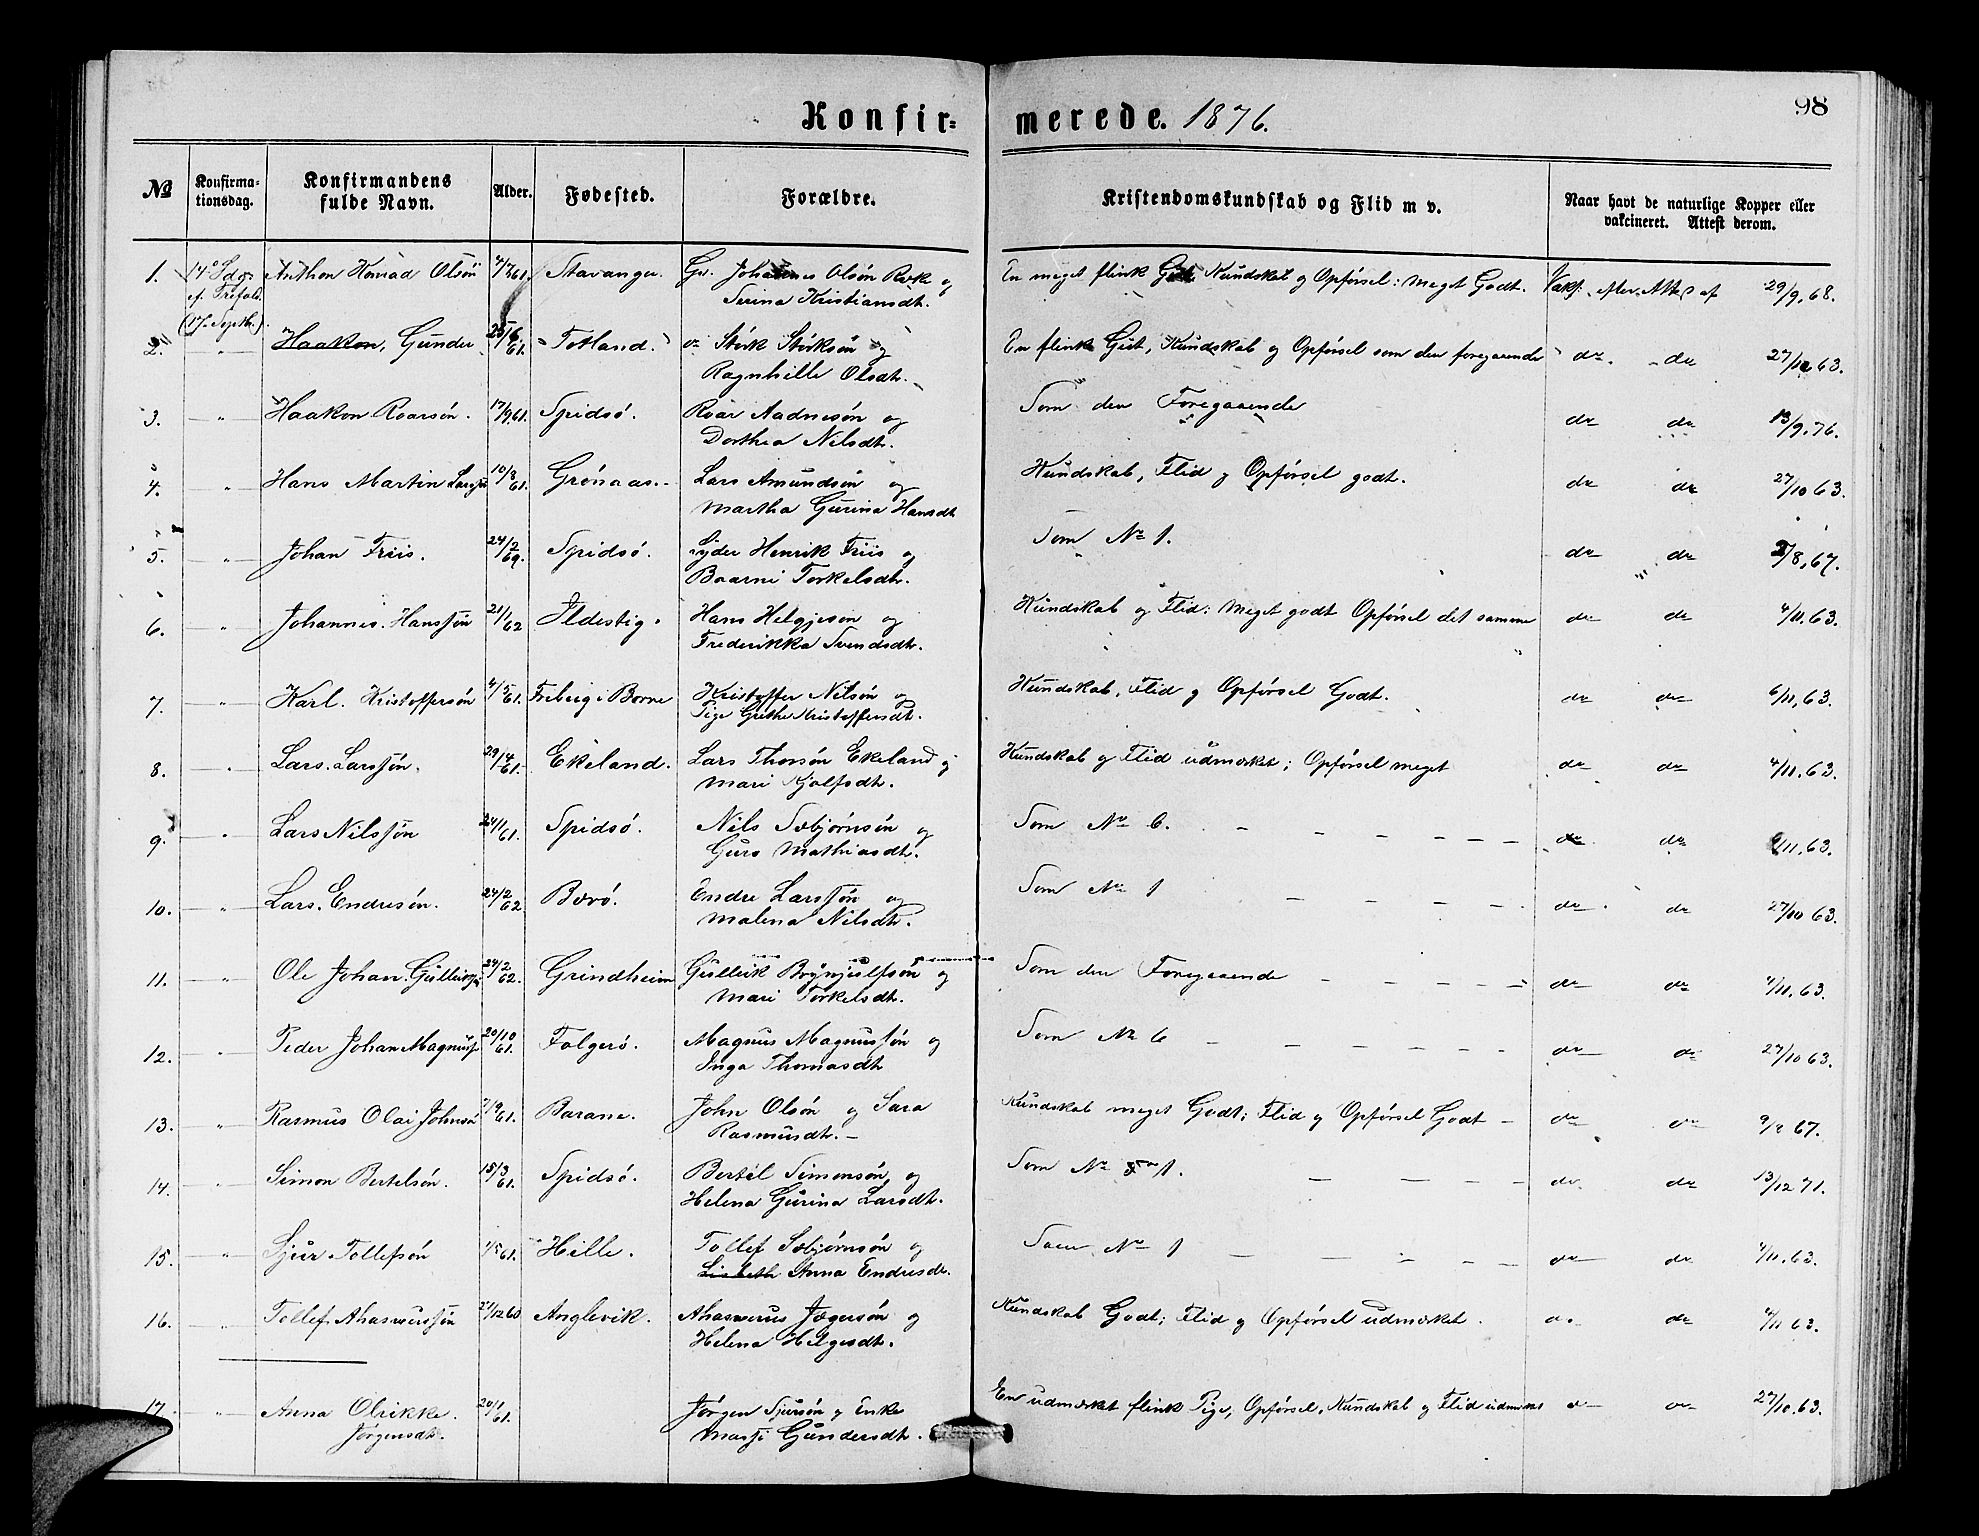 98
Konfir= merede. 1876.
№ Konfirma-tionsdag. Konfirmandens fulde Navn. Alder. Fødested. Forældre. Kristendomskundskab og Flid m v. Naar havt de naturlige Kopper eller vakcineret. Attest derom.
1. 14de Sdg. Anthon Konrad Olsön 4/7 61. Stavanger. Johannes Olsön og En meget flink Gut Kundskab og Opförsel: meget Godt. Vakc. efter Att. af 29/9, 68.
ef. Trefold. Serina Kristiansdtr.
(17de Septbr.)
2. " Haakon, Gunder 25/6 61. Totland. Störk Störksön og En flink Gut, Kundskab og Opförsel som den foregaaende do do 27/10 63.
Ragnhille Olsdtr.
3. " Haakon Roarsön. 17/9 61. Spidsö. Roar Aadnesön og Som den Foregaaende do do 13/9. 76.
Dorthea Nilsdtr.
4. " Hans Martin Larssön 10/8 61. Grönaas. Lars Amundsön og Kundskab, Flid og Opförsel godt. do do 27/10 63.
Martha Gurina Hansdtr
5. " Johan Friis. 24/2 Spidsö. Lyder Henrik Friis og Som No 1. do do /8, 67.
Baarni Torkelsdtr.
6. " Johannes Hanssön 21/1 62 Ildestig. Hans Helgjesön og Kundskab og Flid: Meget godt Opförsel det samme do do 4/11. 63.
Frederikka Svendsdtr.
7. " Karl. Kristoffersön 4/5 61. Friberg i Börne Kristoffer Nilsön og Kundskab, Flid og Opförsel Godt. do do 6/11, 63.
Pige Grethe Kristoffersdtr.
8. " Lars. Larssön. 29/4 61. Ekeland. Lars Thorsön Ekeland og Kundskab og Flid udmærket; Opförsel meget do do 4/11. 63.
Mari Kjolfsdtr.
9. " Lars Nilssön 24/1 61. Spidsö. Nils Sæbjörnsön og Som No 6. do do /11. 63.
Guro Mathiasdtr.
10. " Lars. Endresön. 24/2 62 Bovö. Endre Larssön og Som No 1 do do 27/10 63.
Malena Nilsdtr.
11. " Ole Johan Gulliks 24/2 62. Grindheim Gulleik Brynjulfsön og Som den Foregaaende do do 4/11. 63.
Mari Torkelsdtr.
12. " Peder Johan Magnuss 20/10 61. Folgerö. Magnus Magnussön og Som No 6 do do 27/10 63.
Inga Thomasdtr
13. " Rasmus Olai Johnsö 7/9 61. Barane. John Olsön og Sara Kundskab meget Godt; Flid og Opförsel Godt do do 9/8 67.
Rasmusdtr.
14. " Simon Bertelsön. 15/3 61. Spidsö. Bertel Simonsön og Som No 1. do do 13/12 71.
Helena Gurina Larsdtr.
15. " Sjur Tollefsön 1/5 61. Hille. Tollef Sæbjörnsön og Som No 1 do do 4/11. 63.
Lisbeth Anna Endresdr.
16. " Tollef Ahasverssön 27/12 60 Anglevik. Ahasverus Jægersön og Kundskab Godt; Flid og Opförsel udmærket. do do 4/11 63.
Helena Helgesdtr.
17. " Anna Olrikke. 20/1 61. Jörgen Sjursön og Enke En udmærket flink Pige, Opförsel, Kundskab og Flid do do 27/10. 63.
Jörgensdtr. Massi Gundersdtr.